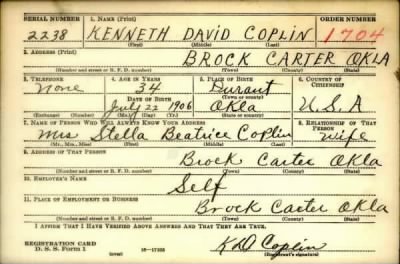 SERIAL NUMBER 1. NAME (Print) ORDER NUMBER
2238 KENNETH DAVID COPLIN 1704
(First) (Middle) (Last)
2. ADDRESS (Print)
BROCK CARTER OKLA
(Number and street or R. F. D. number) (Town) (County) (State)
3. TELEPHONE 4. AGE IN YEARS 5. PLACE OF BIRTH 6. COUNTRY OF CITIZENSHIP
None 34 Durant
DATE OF BIRTH (Town or county)
July 22 1906 Okla U.S.A
(Exchange) (Number) (Mo.) (Day) (Yr.) (State or country)
7. NAME OF PERSON WHO WILL ALWAYS KNOW YOUR ADDRESS 8. RELATIONSHIP OF THAT PERSON
Mrs Stella Beatrice Coplin Wife
(Mr., Mrs., Miss) (First) (Middle) (Last)
9. ADDRESS OF THAT PERSON
Brock Carter Okla
(Number and street or R. F. D. number) (Town) (County) (State)
10. EMPLOYER'S NAME
Self
11. PLACE OF EMPLOYMENT OR BUSINESS
Brock Carter Okla
(Number and street or R. F. D. number) (Town) (County) (State)
I AFFIRM THAT I HAVE VERIFIED ABOVE ANSWERS AND THAT THEY ARE TRUE.
REGISTRATION CARD
D. S. S. Form 1 (over) K D Coplin
(Registrant's signature)